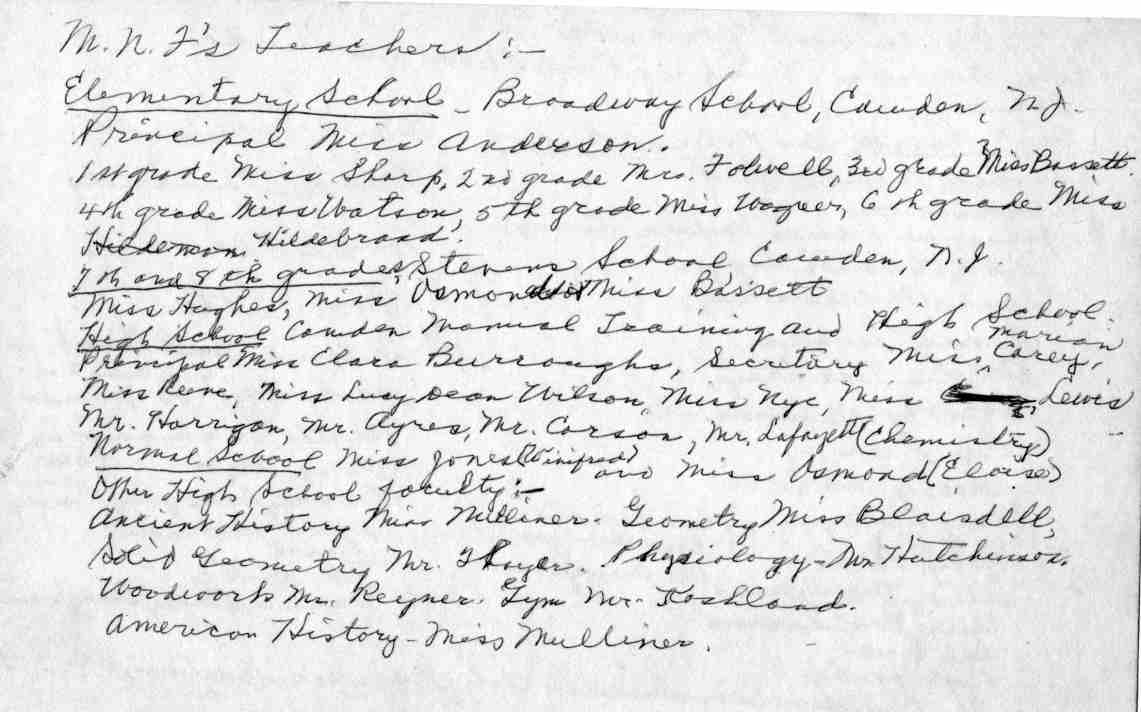 M. N. F's Teachers:-
Elementary School - Broadway School, Camden, N.J.
Principal Miss Anderson.
1st grade Miss Sharp, 2nd grade Mrs. Folwell, 3rd grade Miss Bassett.
4th grade Miss Watson, 5th grade Miss Wagner, 6th grade Miss
Hildebrand.
7th and 8th grades, Stevens School Camden, N.J.
Miss Hughes, Miss Osmond Miss Bassett
High School Camden Manual Training and High School.
Principal Miss Clara Burroughs, Secretary Miss Marian Carey,
Miss Reeve, Miss Lucy Dean Wilson, Miss Nye, Miss Lewis
Mr. Harrigan, Mr. Ayres, Mr. Carson, Mr. Lafayett (Chemistry)
Normal School Miss Jones (Winifred) and Miss Osmond (Eloise)
Other High School faculty:-
Ancient History Miss Mulliner. Geometry Miss Blaisdell,
Solid Geometry Mr. Thayer. Physiology - Mr. Hutchinson.
Woodwork Mr. Reyner. Gym Mr. Koshland.
American History - Miss Mulliner.